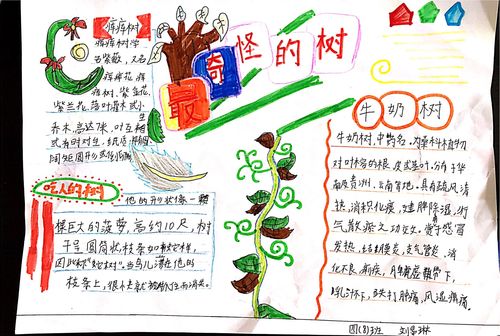 最奇怪的树
痒痒树
痒痒树学
名紫薇,又名
痒痒花 痒
痒树、紫金花、
紫兰花、落叶灌木或小
乔木,高达7米,叶互生
或有时对生,纸质
吃人的树
他的形状像一颗
模巨大的菠萝,高约10尺,树
干呈圆筒状,枝条如蛇样,
因此称"蛇树"。当鸟儿落在他的
枝条上,很
牛奶树
牛奶树,中药名,为桑科植物
对叶榕的根、皮或茎叶,分布于华
南及贵州、云南等地,具有疏风清
热,消积化痰,健脾除湿,行
气散瘀之功效。
发热,结膜炎,支气管炎,消
化不良,痢疾,
乳汁不下,跌打肿痛,风湿痹痛。